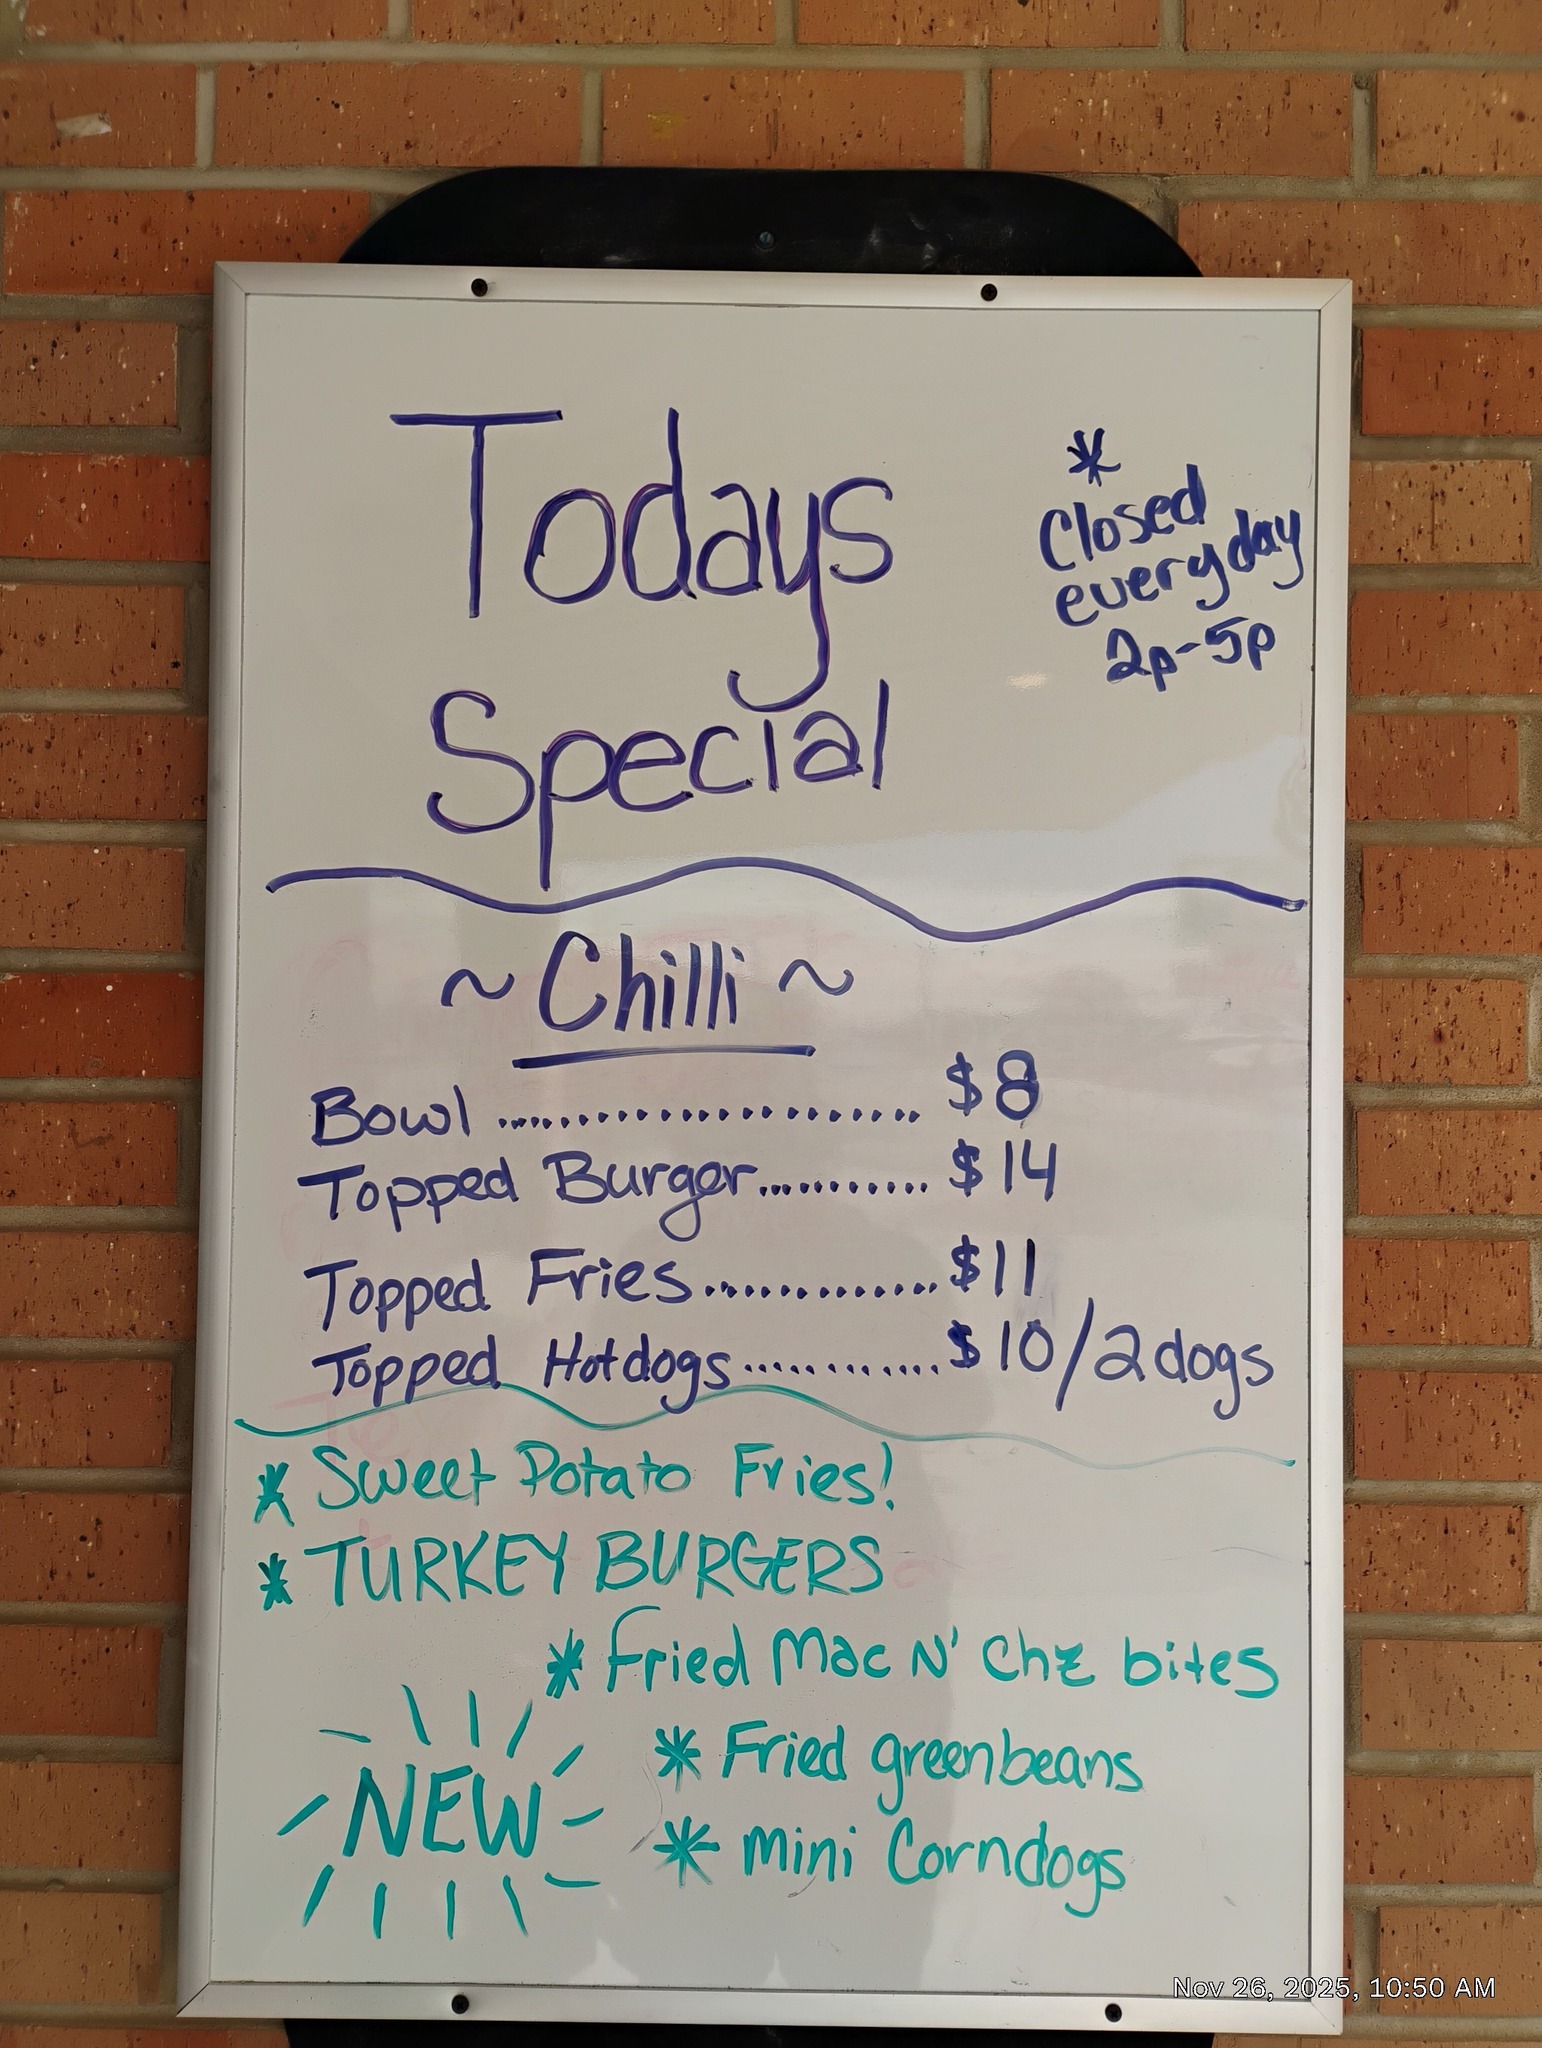 Todays
Special
*
Closed
everyday
2p-5p
~ Chilli ~
Bowl ........................ $8
Topped Burger............ $14
Topped Fries.............. $11
Topped Hotdogs............. $10/2dogs
* Sweet Potato Fries!
* TURKEY BURGERS
* Fried Mac N' Chz bites
* Fried greenbeans
NEW
* mini Corndogs
Nov 26, 2025, 10:50 AM